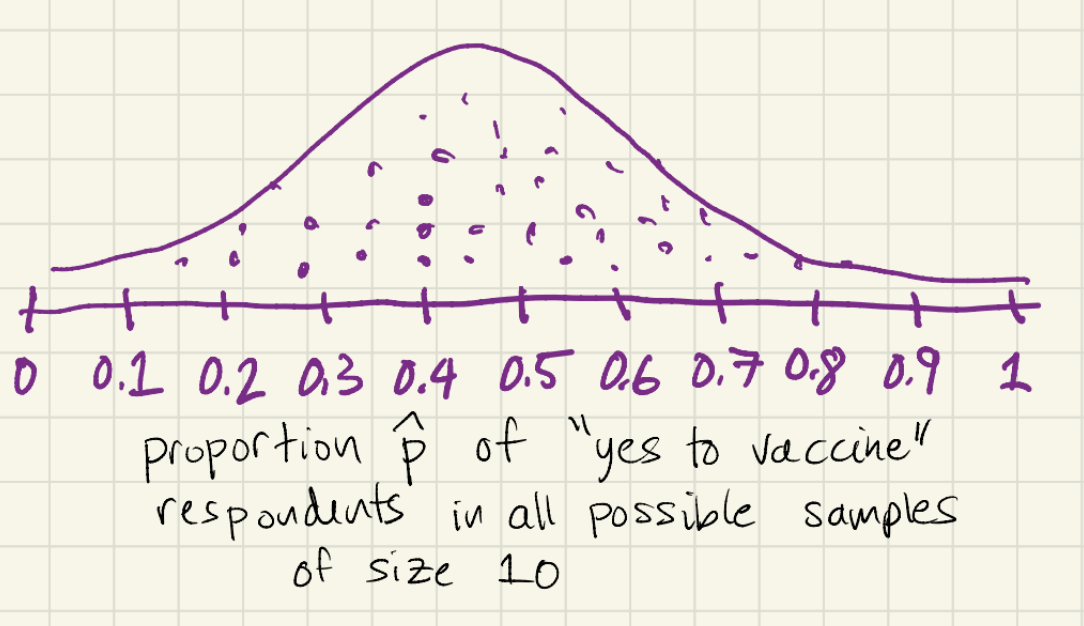 0 0.1 0.2 0.3 0.4 0.5 0.6 0.7 0.8 0.9 1
proportion p̂ of "yes to vaccine"
respondents in all possible samples
of size 10